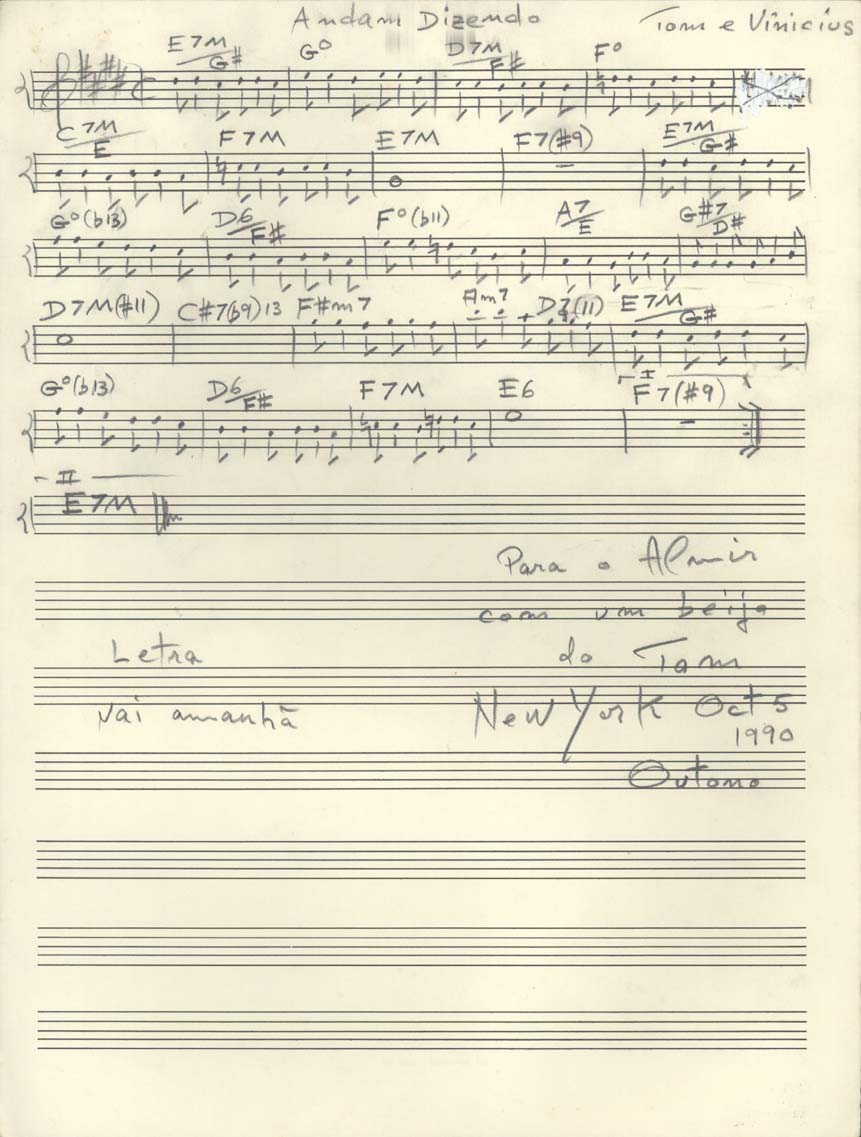 Andam Dizendo Tom e Vinicius
E7M/G# G° D7M/F# F°
C7M/E F7M E7M F7(#9) E7M/G#
G°(b13) D6/F# F°(b11) A7/E G#7/D#
D7M(#11) C#7(b9)13 F#m7 Am7 D7(11) E7M/G#
G°(b13) D6/F# F7M E6 I F7(#9)
II
E7M
Para o Almir
com um beijo
Letra do Tom
Vai amanhã New York Oct 5
1990
Outono